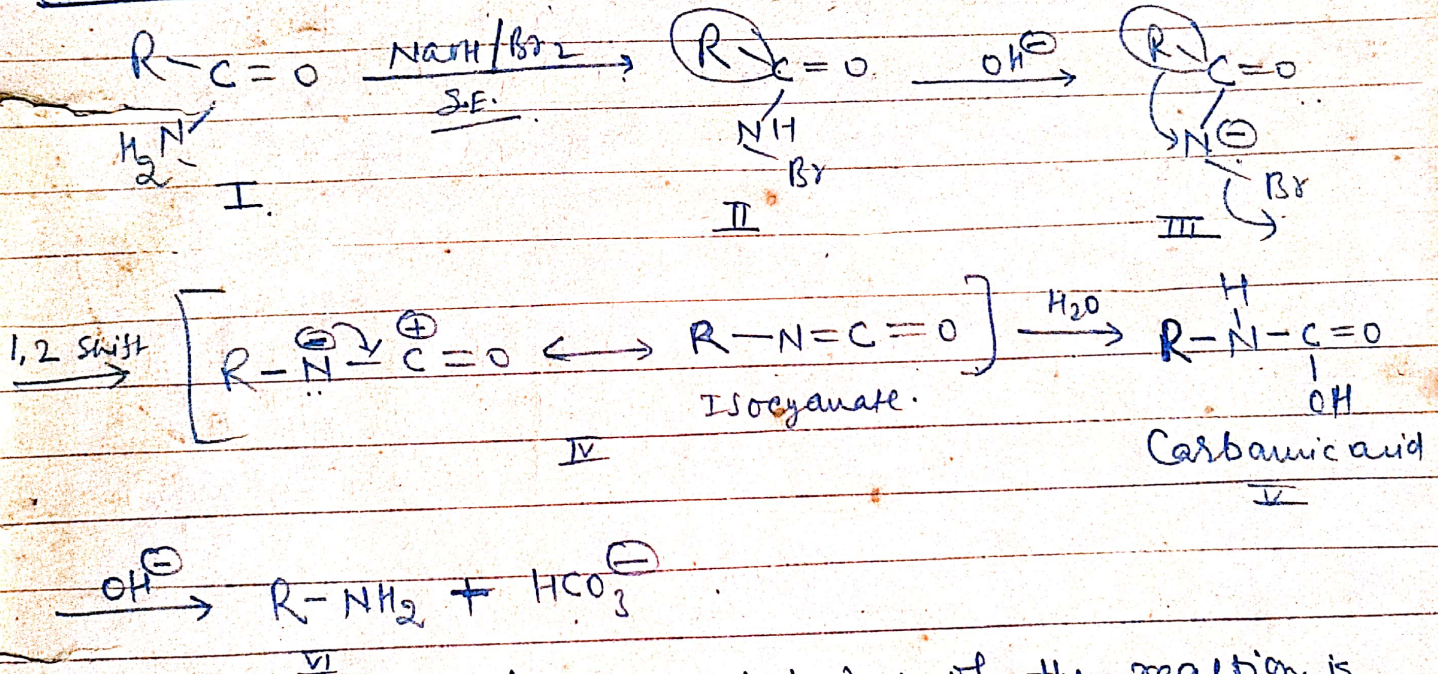 R-C=O NaOH/Br2 R-C=O OH⊖ R-C=O
S.E.
H2N NH N⊖
Br Br
I. II III
1,2 shift [R-N⊖-C⊕=O ⟷ R-N=C=O] H2O R-N-C=O
H
OH
Isocyanate.
IV Carbamic acid
V
OH⊖ R-NH2 + HCO3⊖ .
VI of the reaction is